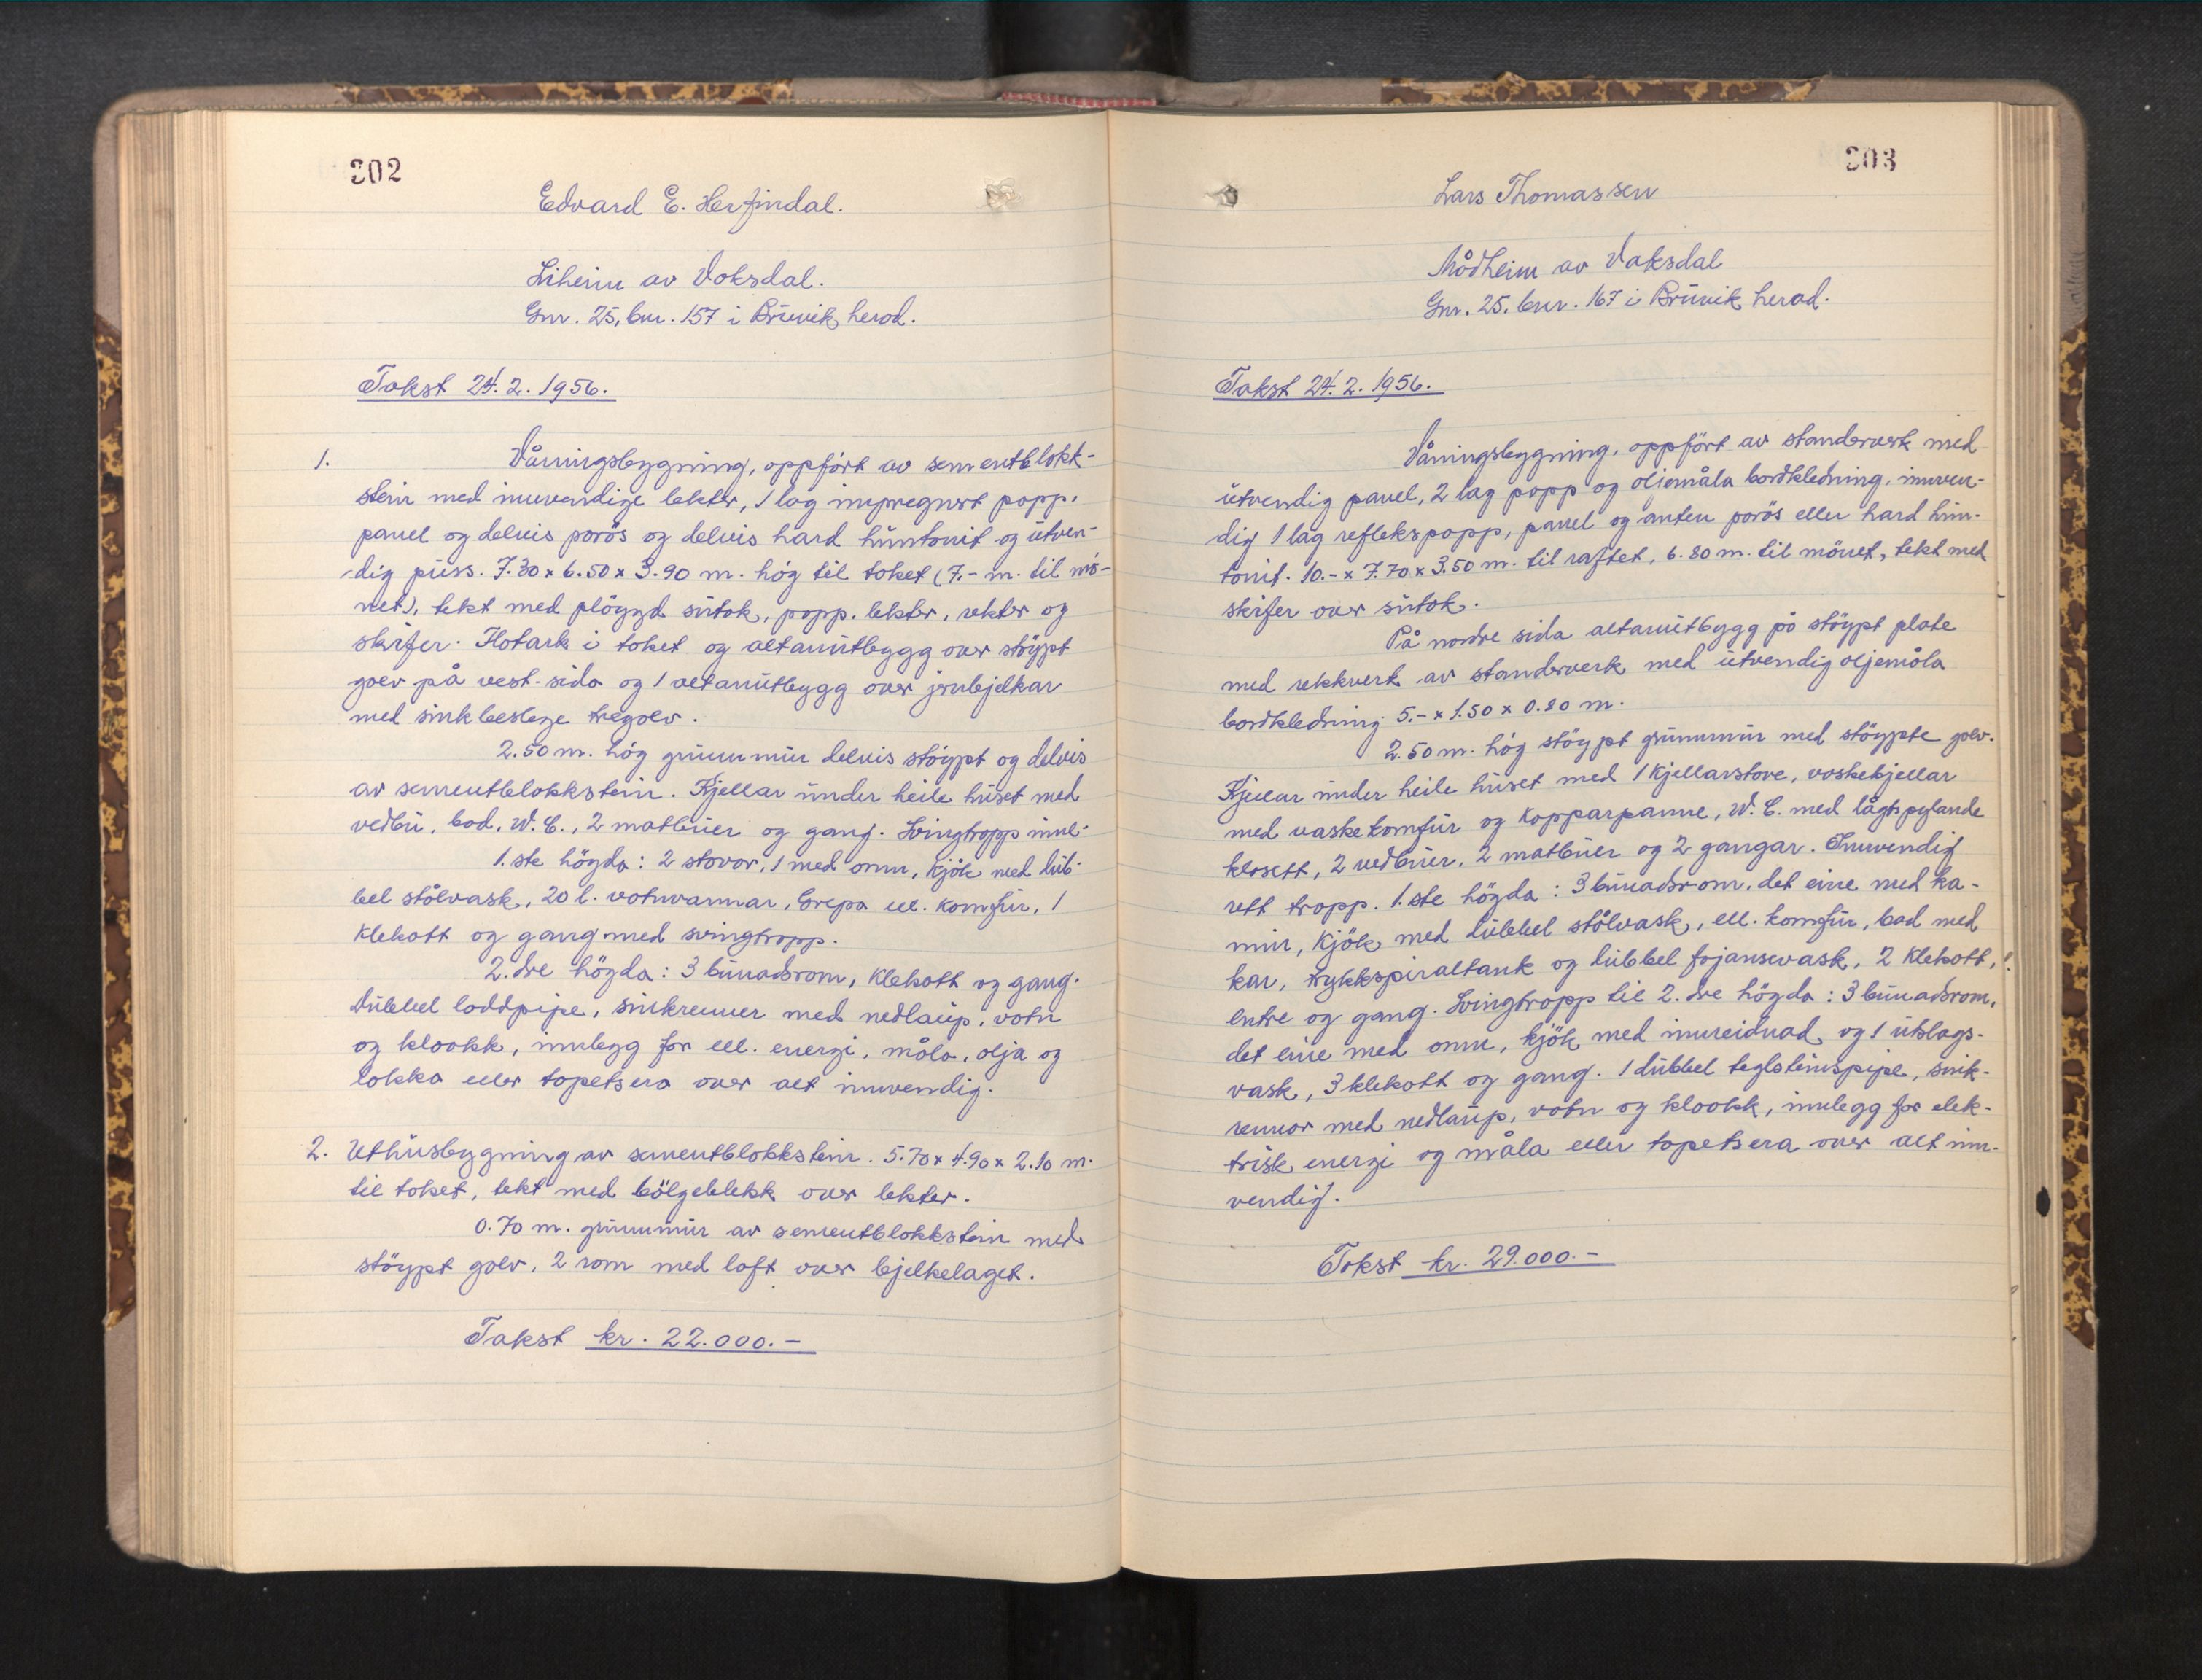 202
Edvard E. Herfindal.
Liheim av Vaksdal.
Gnr. 25, bnr. 157 i Bruvik herad.
Takst 24.2.1956.
1. Våningsbygning, oppført av sementblokk-
stein med innvendige lekter, 1 lag impregnert papp,
panel og delvis porös og delvis hard huntonit og utven-
dig puss. 7.30 x 6.50 x 3.90 m. hög til taket (7.- m. til mö-
net), tekt med plöygd sutak, papp. lekter, rekter og
skifer. Flatark i taket og altanutbygg over stöypt
golv på vest-sida og 1 altanutbygg over jernbjelkar
med sinkbeslege tregolv.
2.50 m. hög grunnmur delvis stöypt og delvis
av sementblokkstein. Kjellar under heile huset med
vedbu, bad, W.C., 2 matbuer og gang. Svingtrapp inne.
1.ste högda: 2 stovor, 1 med omn, kjök med dub-
bel stålvask, 20 l. vatnvarmar, Grepa el. komfur, 1
klekott og gang med svingtrapp.
2.dre högda: 3 bunadsrom, klekott og gang.
Dubbel loddpipe, sinkrenner med nedlaup, vatn
og kloakk, innlegg for el. energi, måla, olja og
lakka eller tapetsera over alt innvendig.
2. Uthusbygning av sementblokkstein. 5.70 x 4.90 x 2.10 m.
til taket, tekt med bölgeblekk over lekter.
0.70 m. grunnmur av sementblokkstein med
stöypt golv, 2 rom med loft over bjelkelaget.
Takst kr. 22.000.-
203
Lars Thomassen
Mådheim av Vaksdal
Gnr. 25. bnr. 167 i Bruvik herad.
Takst 24.2.1956.
Våningsbygning, oppfört av standerverk med
utvendig panel, 2 lag papp og oljemåla bordkledning, innven-
dig 1 lag reflekspapp, panel og anten porös eller hard hun-
tonit. 10.- x 7.70 x 3.50 m. til raftet, 6.80 m. til mönet, tekt med
skifer over sutak.
På nordre sida altanutbygg på stöypt plate
med rekkverk av standerverk med utvendig oljemåla
bordkledning 5.- x 1.50 x 0.80 m.
2.50 m. hög stöypt grunnmur med stöypte golv.
Kjellar under heile huset med 1 kjellarstove, vaskekjellar
med vaskekomfur og kopparpanne, W.C. med lågtspylande
klosett, 2 vedbuer, 2 matbuer og 2 gangar. Innvendig
rett trapp. 1.ste högda: 3 bunadsrom, det eine med ka-
min, kjök med dubbel stålvask, el. komfur, bad med
kar, trykkspiraltank og dubbel fajansevask, 2 klekott,
entre og gang. Svingtrapp til 2.dre högda: 3 bunadsrom,
det eine med omn, kjök med innreidnad og 1 utslags-
vask, 3 klekott og gang. 1 dubbel teglsteinspipe, sink-
rennor med nedlaup, vatn og kloakk, innlegg for elek-
trisk energi og måla eller tapetsera over alt inn-
vendig.
Takst kr. 29.000.-